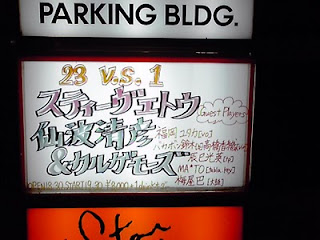 PARKING BLDG.
23 V.S. 1
スティーヴエトウ
Guest Players
仙波清彦
福岡ユタカ[vo]
バカボン鈴木[b]高橋香織[vn]
&カルガモーズ
辰巳光英[tp]
MA*TO[tabla, key]
OPEN 18:30 START 19:30 ¥8,000
梅屋巴[大鼓]
Star